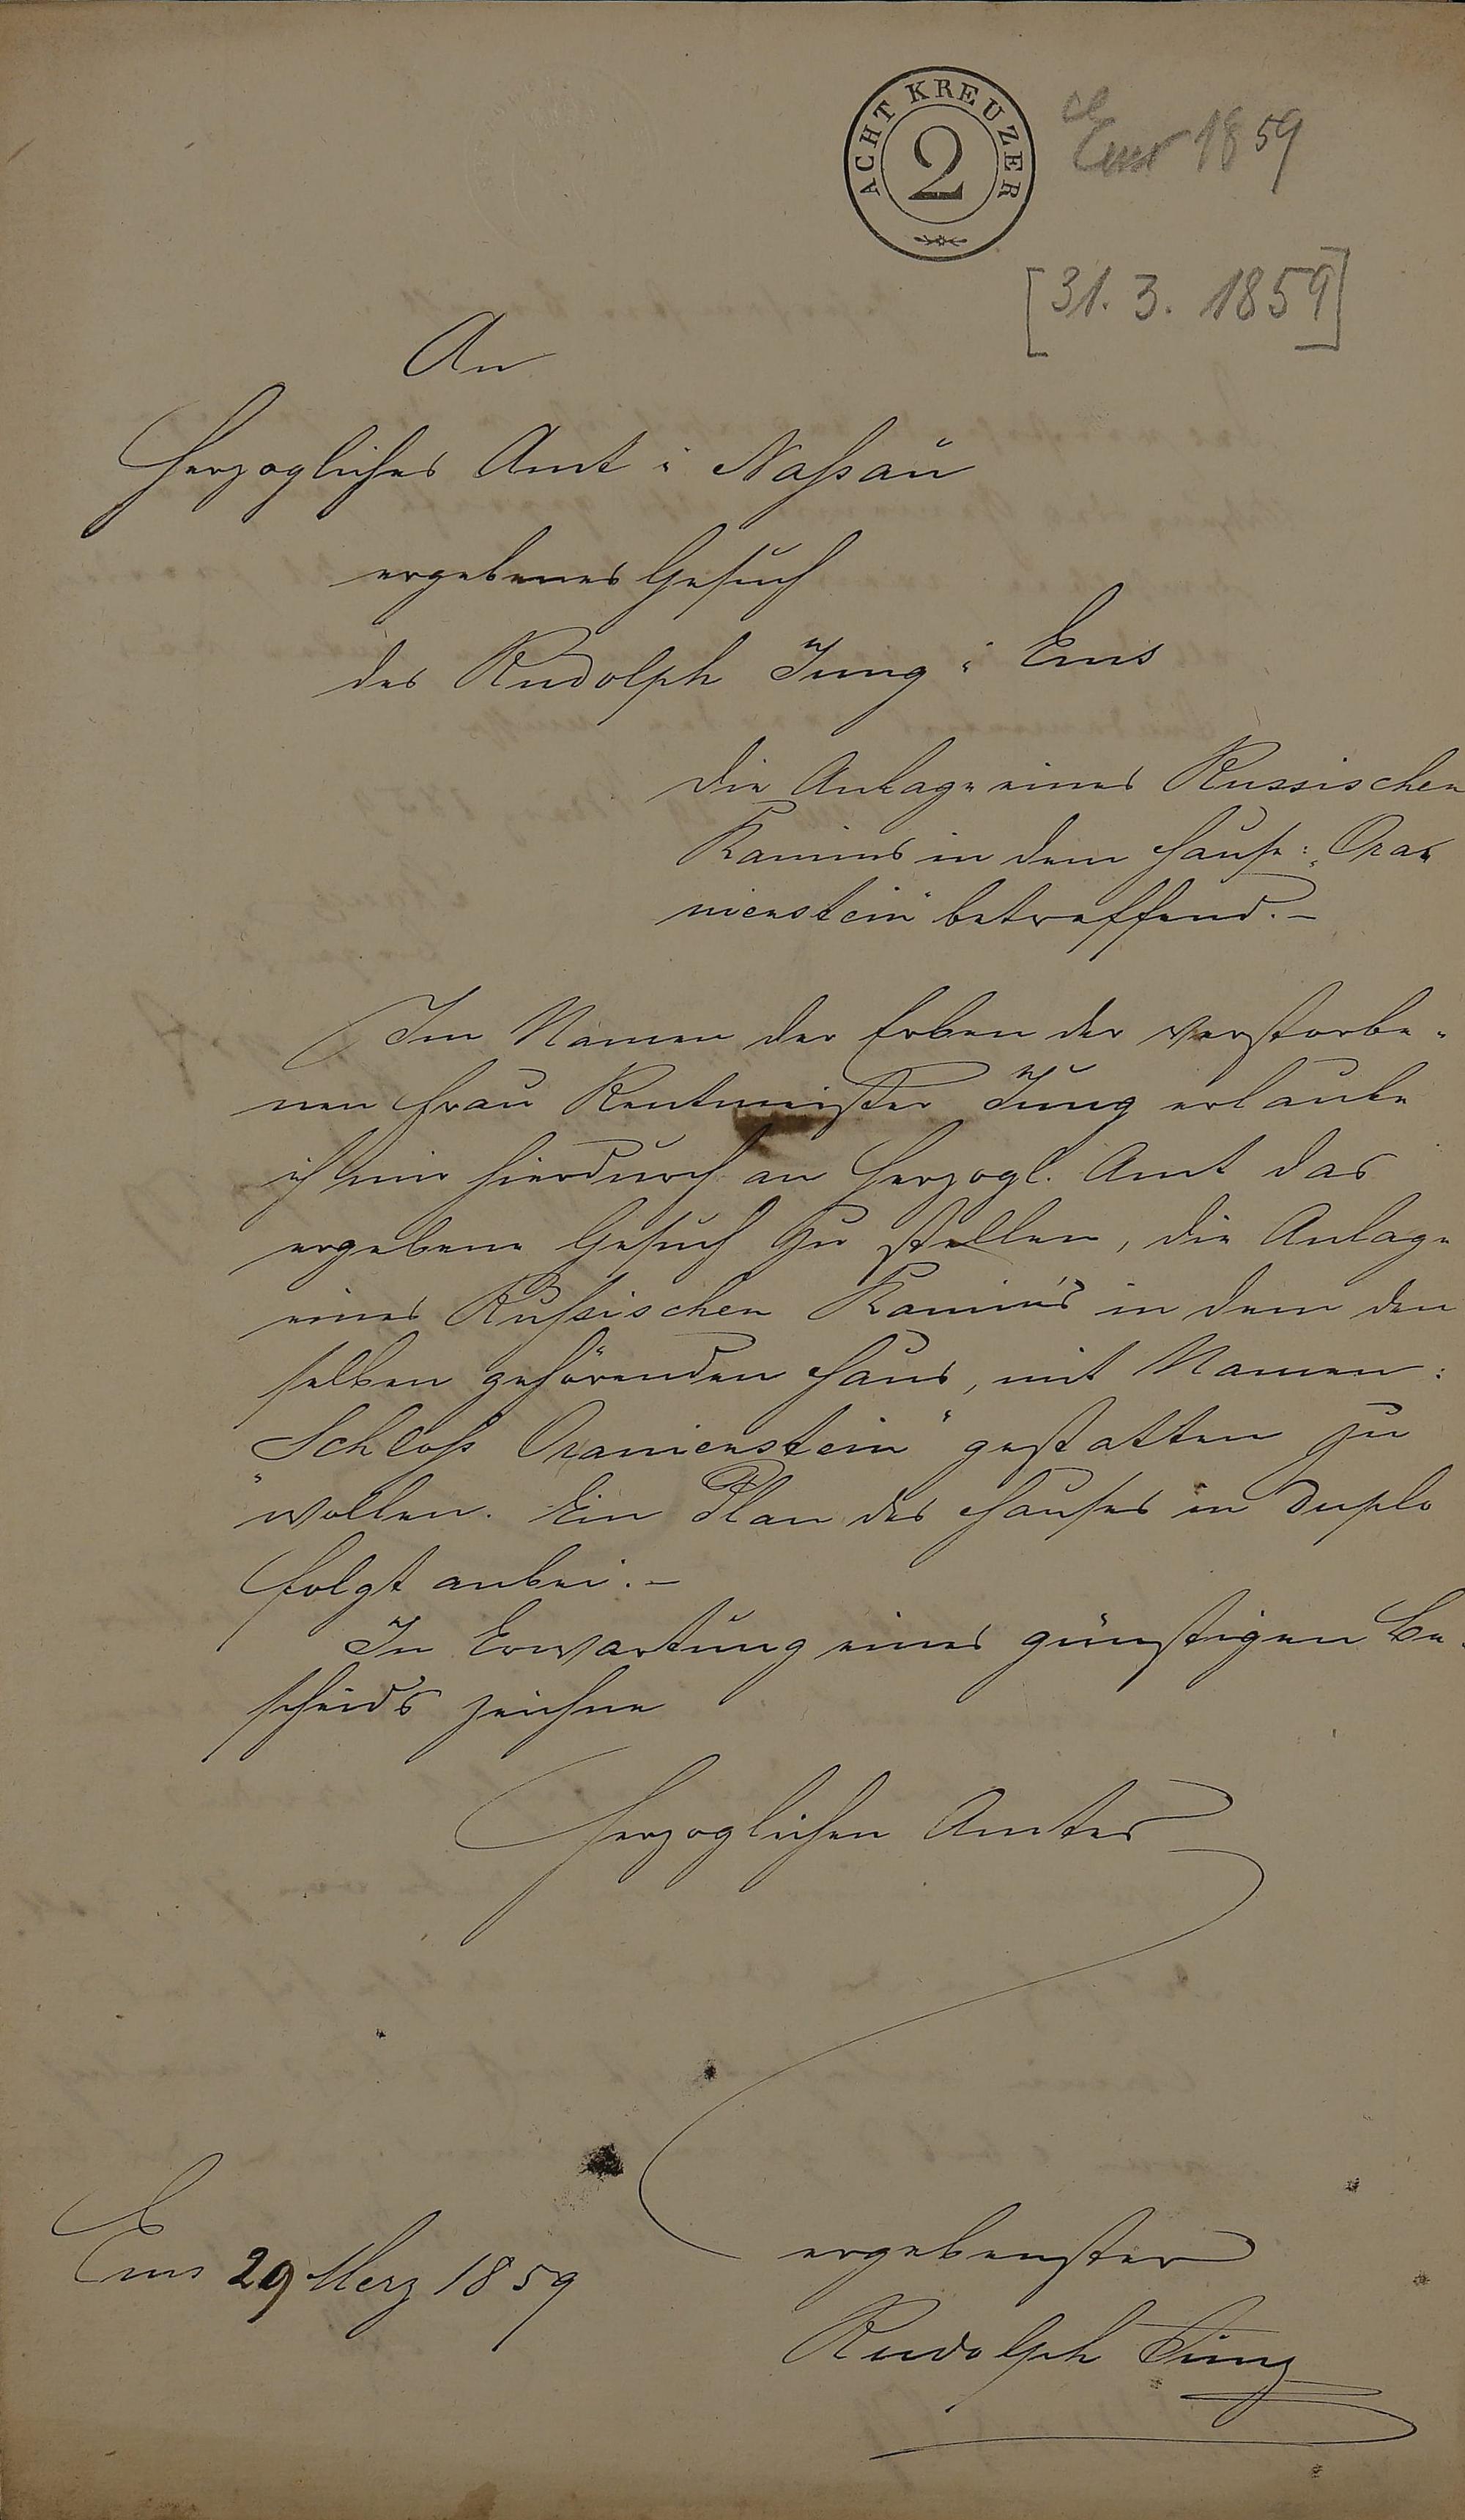 ACHT KREUZER
2
Ems 1859
[31. 3. 1859]
An
Herzogliches Amt i Naßau
ergebenes Gesuch
des Rudolph Jung i Ems
die Anlage eines Russischen
Kamins in dem Hause: „Ora=
nienstein“ betreffend. –
Im Namen der Erben der verstorbe=
nen Frau Rentmeister Jung erlaube
ich mir hierdurch an Herzogl. Amt das
ergebene Gesuch zu stellen, die Anlage
eines Rußischen Kamin's in dem den
selben gehörenden Haus, mit Namen:
„Schloß Oranienstein“ gestatten zu
wollen. Ein Plan des Hauses in Duplo
folgt anbei. –
In Erwartung eines günstigen Be=
scheid's zeichne
Herzoglichen Amtes
ergebenster
Ems 29 Merz 1859
Rudolph Jung